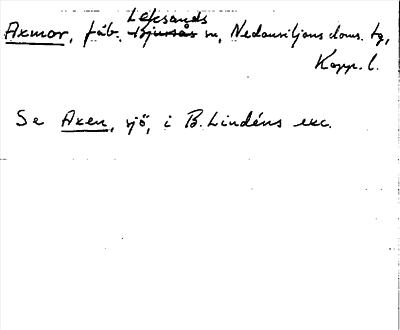 Leksands
Axmor, fäb. Bjursås sn, Nedansiljans doms. tg,
Kopp. l.
Se Axen, sjö, i B. Lindéns exc.